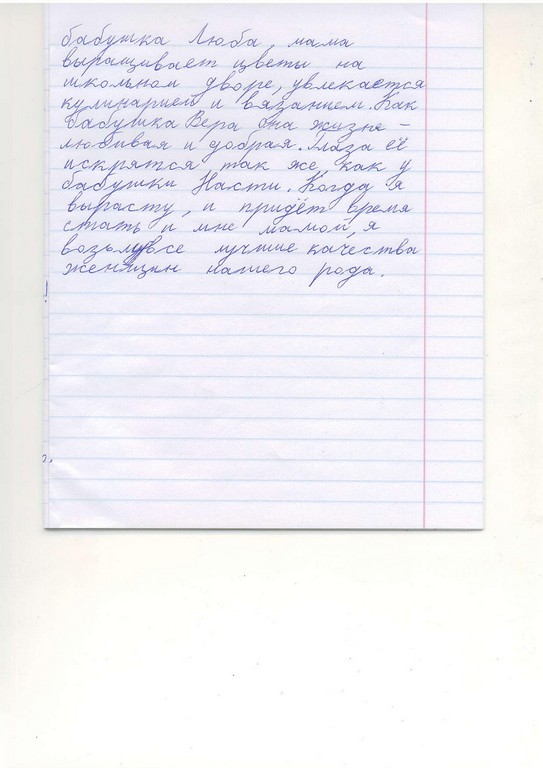 бабушка Люба, мама
выращивает цветы на
школьном дворе, увлекается
кулинарией и вязанием. Как
бабушка Вера она жизне-
любивая и добрая. Глаза её
искрятся так же, как у
бабушки Насти. Когда я
вырасту, и придёт время
стать и мне мамой, я
возьму все лучшие качества
женщин нашего рода.